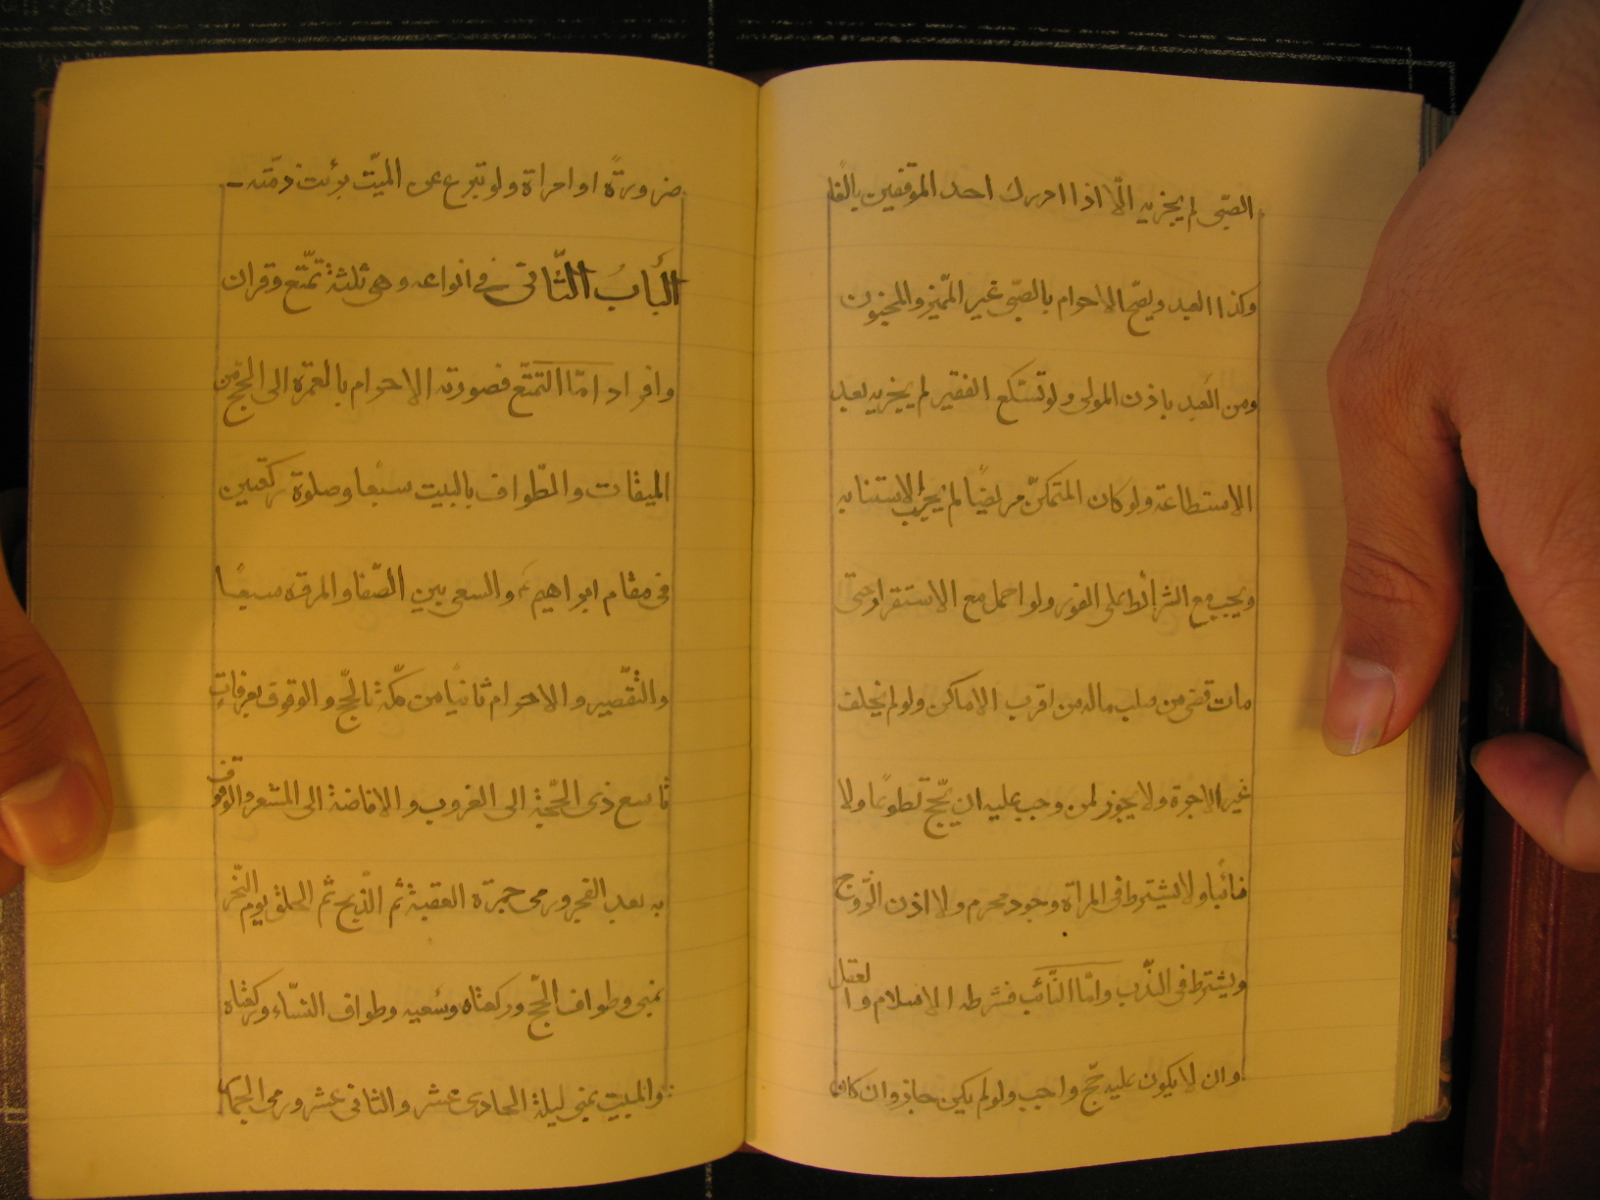 الصّبى لم يجزيه الّا اذا ادرك احد الموقفين بالغًا
وكذا العبد ويصحّ الاحرام بالصّبى غير المّميز والمجنون
ومن العبد باذن المولى ولو تسّكع الفقير لم يجزيه بعد
الاستطاعة ولو كان المتمكنّ مريضًا لم يجب الاستنابه
ويجب مع الشرائط على الفور ولو اهمل مع الاستقرار حتى
مات قضى من صلب ماله من اقرب الاماكن ولو لم يخلف
غير الاجرة ولا يجوز لمن وجب عليه ان يحّج تطوعًا ولا
نائبًا ولا يشترط فى المراة وجود محرم ولا اذن الزّوج
ويشترط فى النّدب وامّا النّائب فشرطه الاسلام والعقل
وان لا يكون عليه حّج واجب ولو لم يكن جاز وان كان
ضرورةً او امراة ولو تبرع عن الميّت برئت ذمّته
البابُ الثّانى فى انواعه وهى ثلثة تمتّع وقران
وافراد امّا التمتّع فصورته الاحرام بالعمره الى الحّج من
الميقات والطّواف بالبيت سبعا وصلوة ركعتين
فى مقام ابراهيم ع والسعى بين الصّفا والمروه سبعًا
والتقّصير والاحرام ثانيا من مكّه بالحّج والوقوف بعرفات
تاسع ذى الحّجة الى الغروب والافاضة الى المشعر والوقوف
به بعد الفجر ورمى جمرة العقبة ثّم الذّبح ثم الحلق يوم النّحر
بمنى وطواف الحّج وركعتاه وسعيه وطواف النسّاء وركعتاه
والمبيت بمنى ليلة الحادى عشر والثانى عشر ورمى الجمار